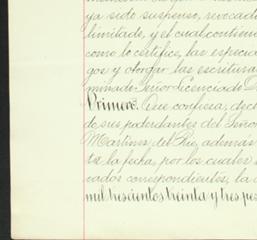 ya sido suspenso, revocado
limitado, y el cual contiene
como lo certifico, las especia
gos y otorgar las escritura
minado Señor Licenciado D
Primera. Que confiesa, decl
de sus poderdantes del Señor
Martinez del Rio, además
ta la fecha, por los cuales
nados correspondientes, la
mil trescientos treinta y tres pes